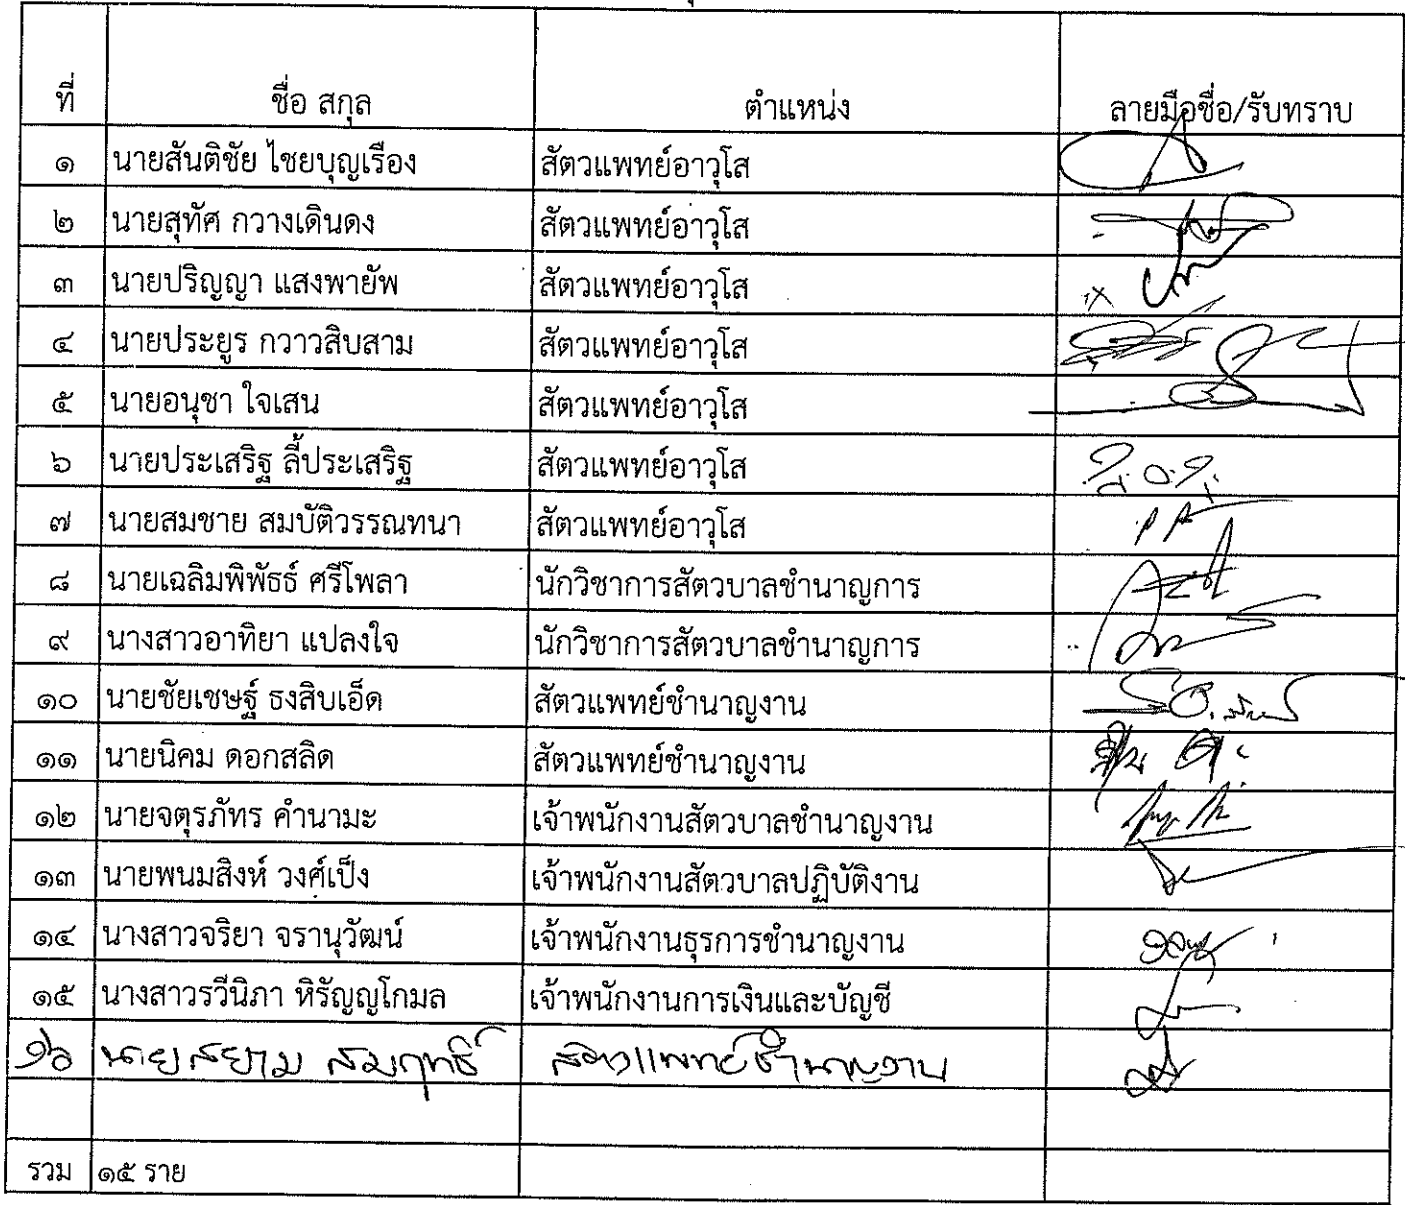 ที่ ชื่อ สกุล ตำแหน่ง ลายมือชื่อ/รับทราบ
๑ นายสันติชัย ไชยบุญเรือง สัตวแพทย์อาวุโส
๒ นายสุทัศ กวางเดินดง สัตวแพทย์อาวุโส
๓ นายปริญญา แสงพายัพ สัตวแพทย์อาวุโส
๔ นายประยูร กวาวสิบสาม สัตวแพทย์อาวุโส
๕ นายอนุชา ใจเสน สัตวแพทย์อาวุโส
๖ นายประเสริฐ ลี้ประเสริฐ สัตวแพทย์อาวุโส
๗ นายสมชาย สมบัติวรรณทนา สัตวแพทย์อาวุโส
๘ นายเฉลิมพิพัธธ์ ศรีโพลา นักวิชาการสัตวบาลชำนาญการ
๙ นางสาวอาทิยา แปลงใจ นักวิชาการสัตวบาลชำนาญการ
๑๐ นายชัยเชษฐ์ ธงสิบเอ็ด สัตวแพทย์ชำนาญงาน
๑๑ นายนิคม ดอกสลิด สัตวแพทย์ชำนาญงาน
๑๒ นายจตุรภัทร คำนามะ เจ้าพนักงานสัตวบาลชำนาญงาน
๑๓ นายพนมสิงห์ วงศ์เป็ง เจ้าพนักงานสัตวบาลปฏิบัติงาน
๑๔ นางสาวจริยา จรานุวัฒน์ เจ้าพนักงานธุรการชำนาญงาน
๑๕ นางสาวรวีนิภา หิรัญญโกมล เจ้าพนักงานการเงินและบัญชี
๑๖ นายสยาม สมฤทธิ์ สัตวแพทย์ชำนาญงาน
รวม ๑๕ ราย